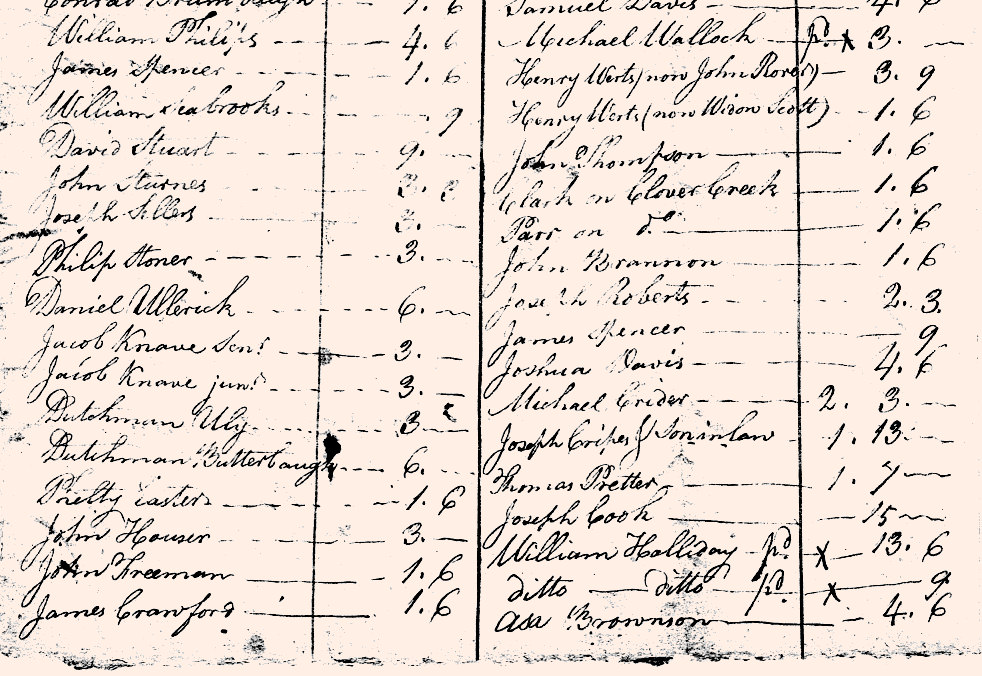 Conrad Brumbaugh 1. 6
William Philips 4. 6
James Spencer 1. 6
William Seabrooks 9
David Stuart 9.
John Sturnes 3. 3
Joseph Sellers 3.
Philip Stoner 3.
Daniel Ullerick 6.
Jacob Knave Senr 3.
Jacob Knave junr 3.
Dutchman Uly 3
Dutchman Butterbaugh 6.
Pretty Easter 1. 6
John Houser 3.
John Freeman 1. 6
James Crawford 1. 6
Samuel Davis 4. 6
Michael Wallock pd x 3.
Henry Werts (now John Rover) 3. 9
Henry Werts (now Widow Scott) 1. 6
John Thompson 1. 6
Clark on Clover Creek 1. 6
Parr on do 1. 6
John Brannon 1. 6
Joseph Roberts 2. 3.
James Spencer 9
Joshua Davis 4. 6
Michael Crider 2. 3.
Joseph Cripes Soninlaw 1. 13.
Thomas Pretter 1. 7
Joseph Cook 15
William Holliday pd x 13. 6
ditto ditto pd. x 9.
Asa Brownson 4. 6